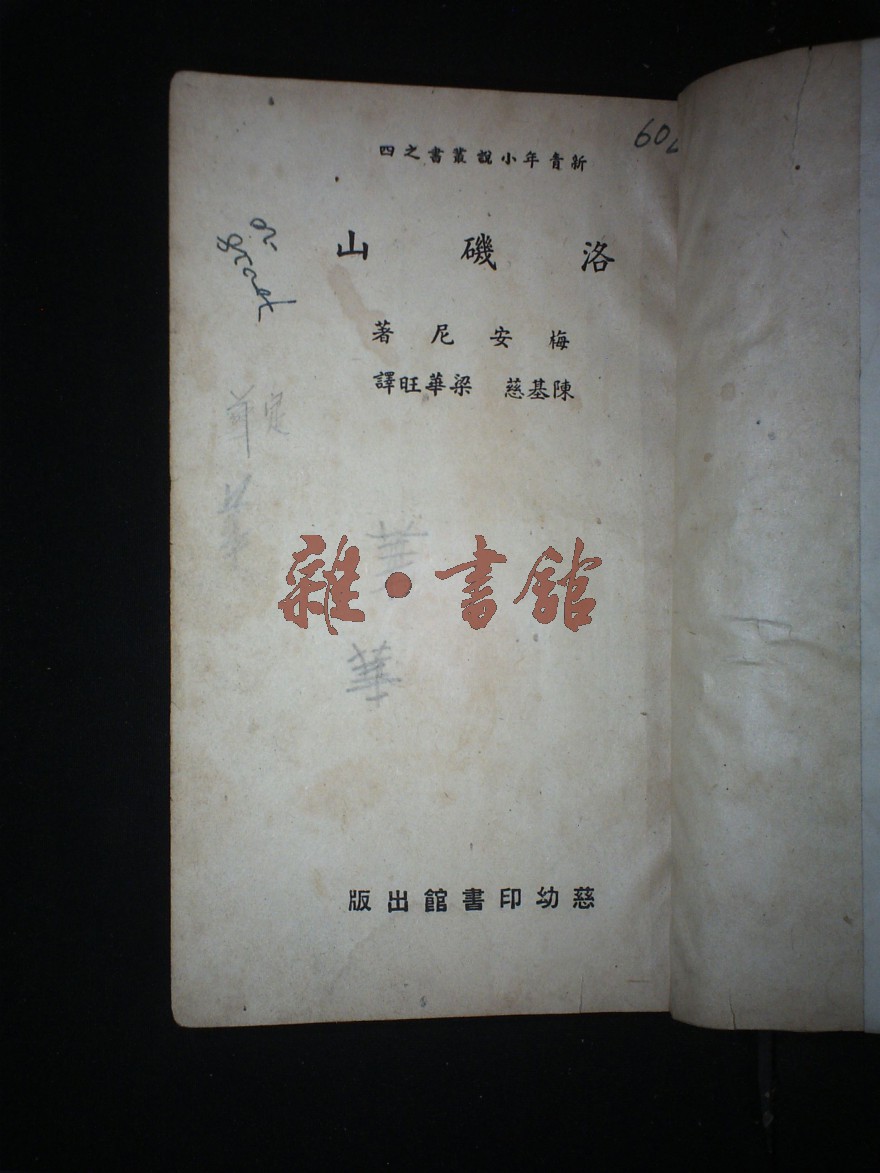 新青年小說叢書之四
602
洛磯山
梅安尼著
陳基慈 梁華旺譯
華
雜·書館
華
慈幼印書館出版